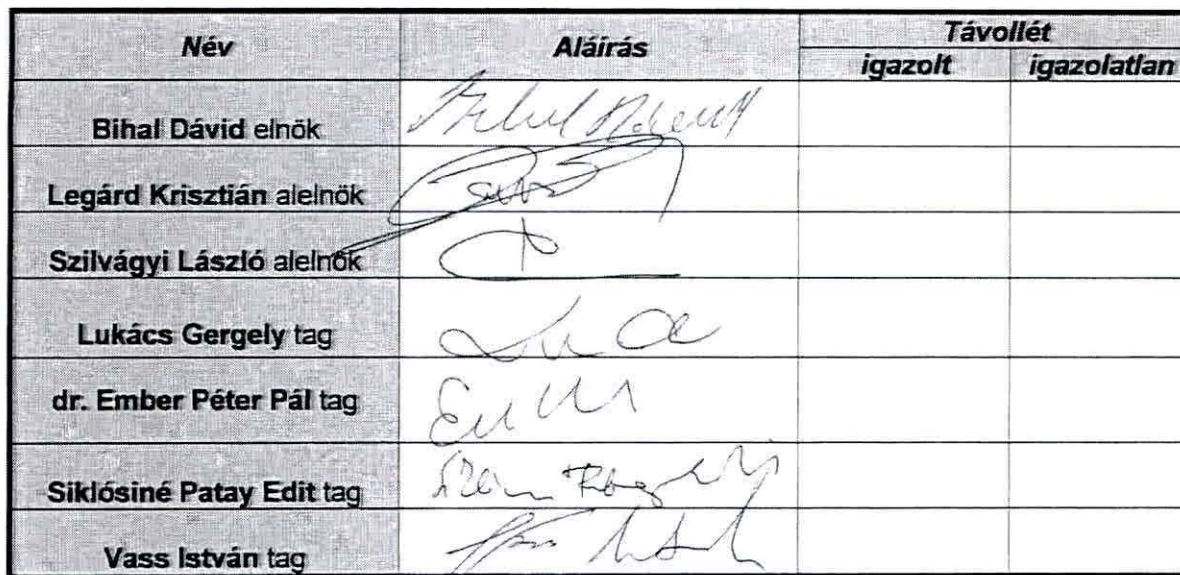 Név Aláírás Távollét
igazolt igazolatlan
Bihal Dávid elnök
Legárd Krisztián alelnök
Szilvágyi László alelnök
Lukács Gergely tag
dr. Ember Péter Pál tag
Siklósiné Patay Edit tag
Vass István tag